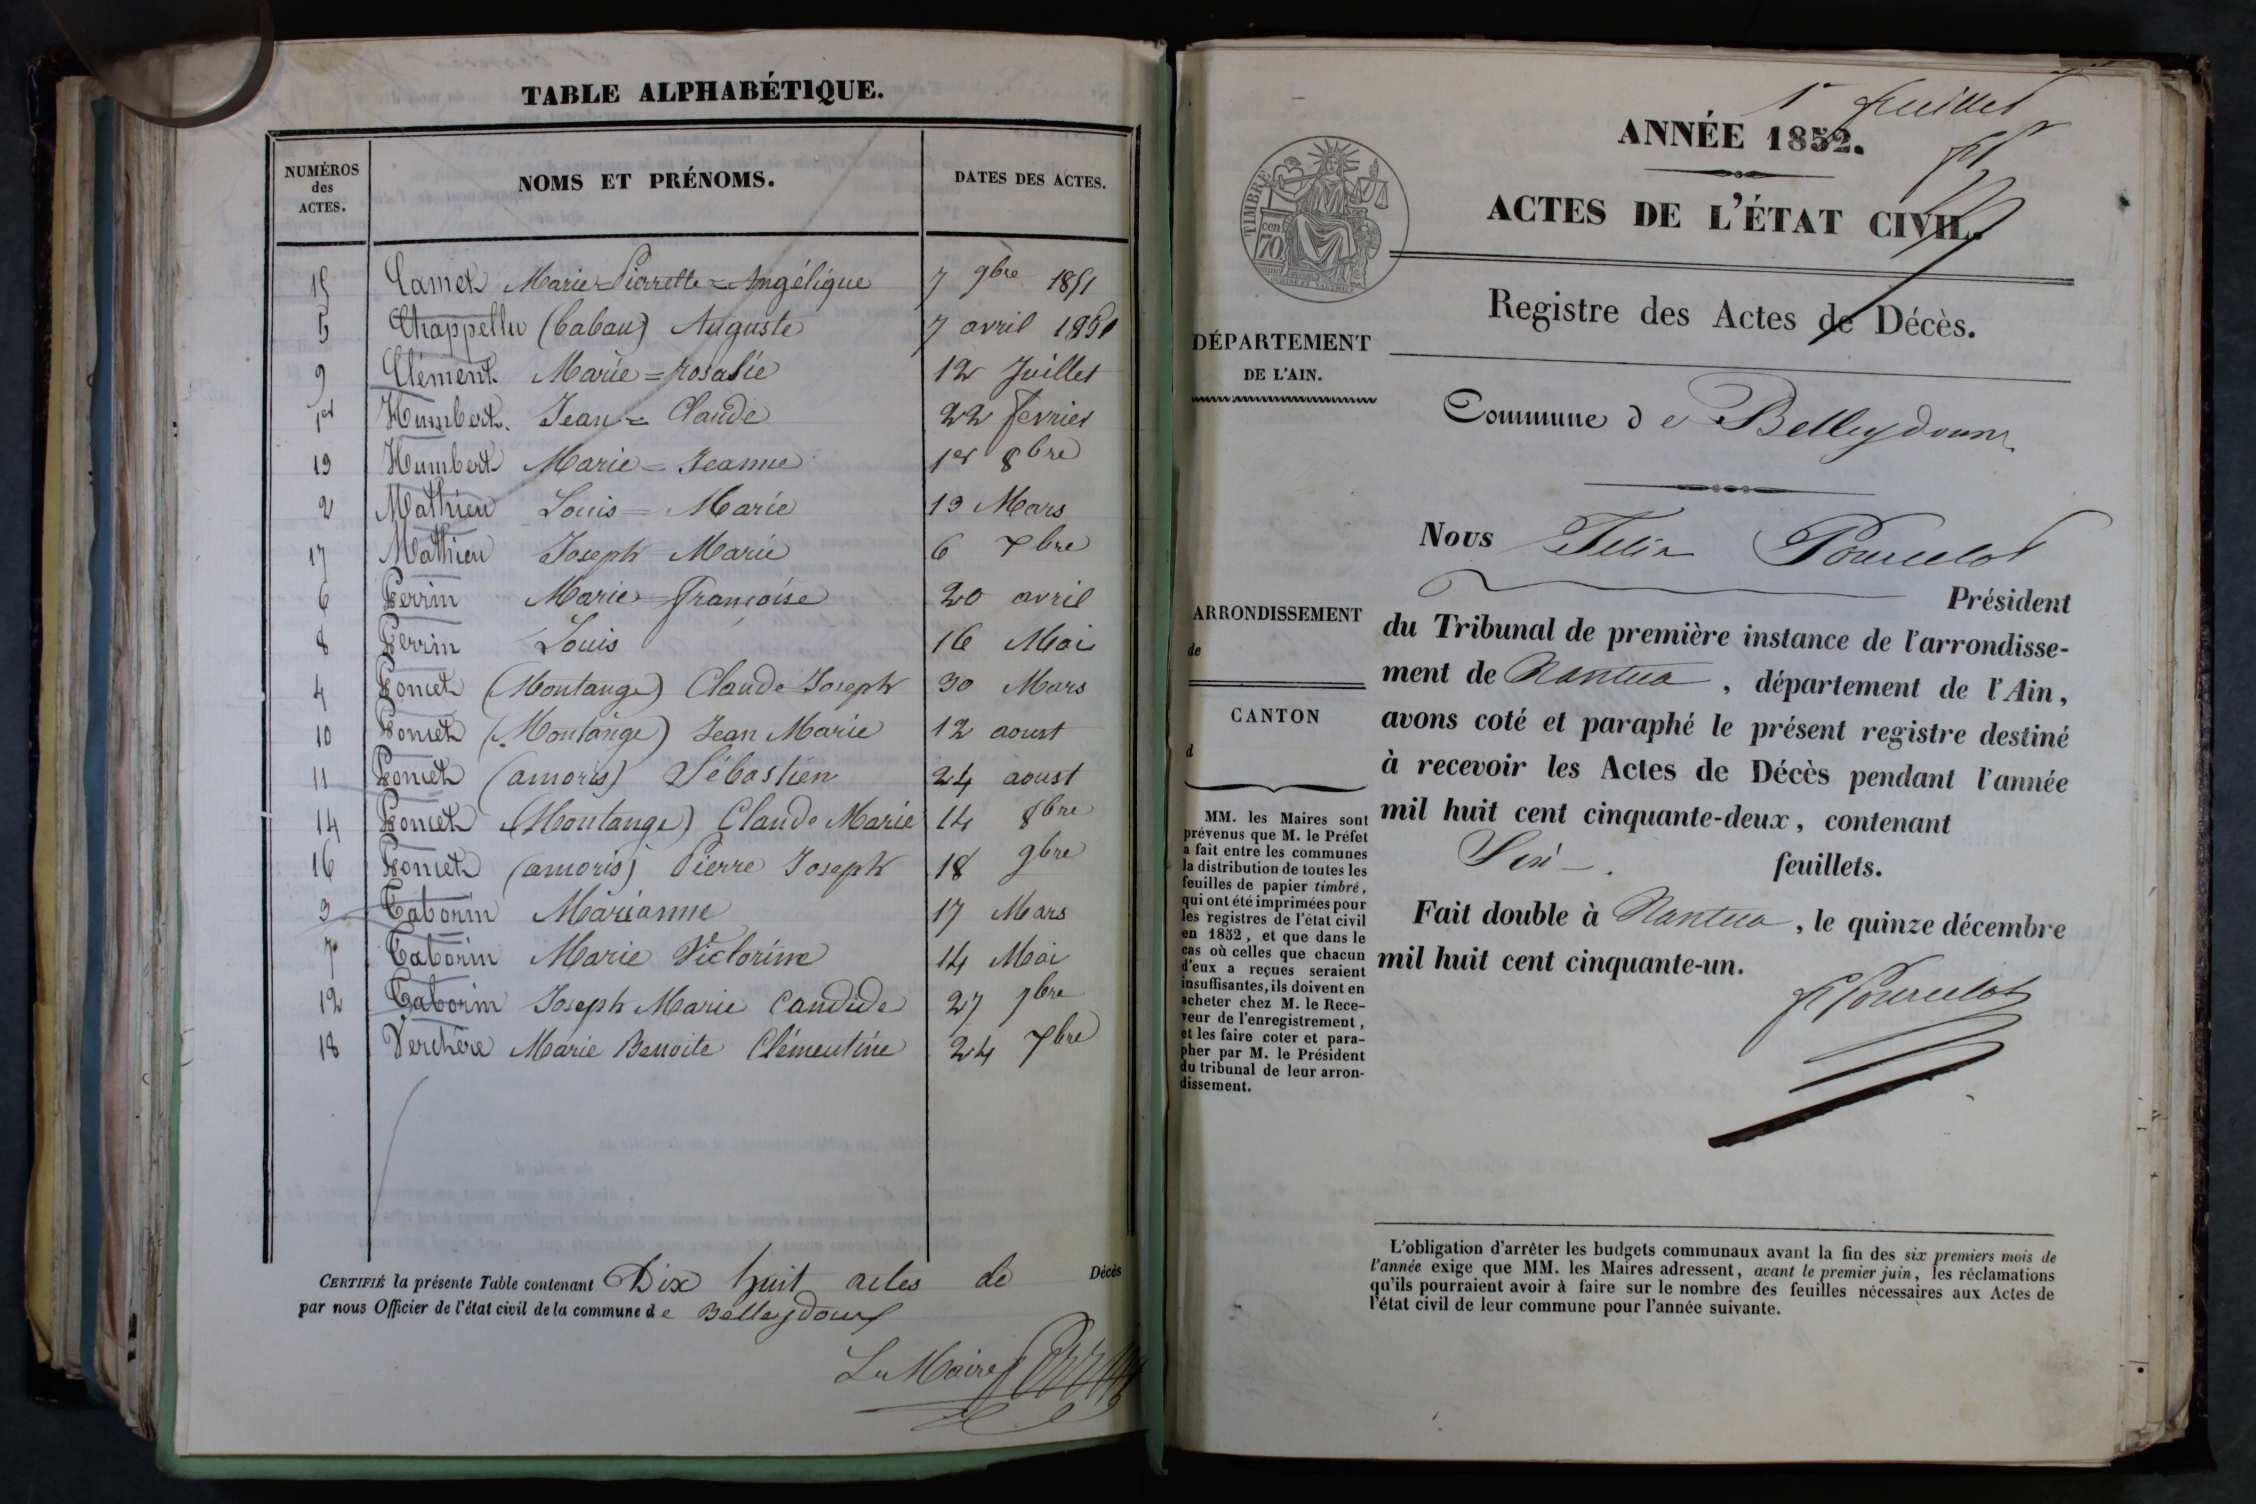 TABLE ALPHABÉTIQUE.
NUMÉROS des ACTES. NOMS ET PRÉNOMS. DATES DES ACTES.
15 Camet Marie Pierrette = Angélique 7 9bre 1851
5 Chappellu (Cabau) Auguste 7 avril 1851
9 Clément Marie = rosalie 12 Juillet
1er Humbert Jean = Claude 22 février
13 Humbert Marie = Jeanne 1er 8bre
2 Mathieu Louis = Marie 13 Mars
17 Mathieu Joseph Marie 6 7bre
6 Perrin Marie = françoise 20 avril
8 Perrin Louis 16 Mai
4 Poncet (Montange) Claude Joseph 30 Mars
10 Poncet (Montange) Jean Marie 12 aoust
11 Poncet (amoris) Sébastien 24 aoust
14 Poncet (Montange) Claude Marie 14 8bre
16 Poncet (amoris) Pierre Joseph 18 9bre
3 Taborin Marianne 17 Mars
7 Taborin Marie Victorine 14 Mai
12 Taborin Joseph Marie Candide 27 7bre
18 Verchère Marie Benoite Clémentine 24 7bre
CERTIFIÉ la présente Table contenant Dix huit actes de Décès
par nous Officier de l'état civil de la commune de Belleydoux
Le Maire Perrin
1r feuillet
ANNÉE 1852.
ACTES DE L'ÉTAT CIVIL.
TIMBRE
70 cen.
Registre des Actes de Décès.
DÉPARTEMENT
DE L'AIN.
Commune de Belleydoux
Nous Félix Pourcelot
Président
du Tribunal de première instance de l'arrondisse-
ment de Nantua, département de l'Ain,
avons coté et paraphé le présent registre destiné
à recevoir les Actes de Décès pendant l'année
mil huit cent cinquante-deux, contenant
Six feuillets.
Fait double à Nantua, le quinze décembre
mil huit cent cinquante-un.
f Pourcelot
ARRONDISSEMENT
de
CANTON
d
MM. les Maires sont
prévenus que M. le Préfet
a fait entre les communes
la distribution de toutes les
feuilles de papier timbré,
qui ont été imprimées pour
les registres de l'état civil
en 1852, et que dans le
cas où celles que chacun
d'eux a reçues seraient
insuffisantes, ils doivent en
acheter chez M. le Rece-
veur de l'enregistrement,
et les faire coter et para-
pher par M. le Président
du tribunal de leur arron-
dissement.
L'obligation d'arrêter les budgets communaux avant la fin des six premiers mois de
l'année exige que MM. les Maires adressent, avant le premier juin, les réclamations
qu'ils pourraient avoir à faire sur le nombre des feuilles nécessaires aux Actes de
l'état civil de leur commune pour l'année suivante.